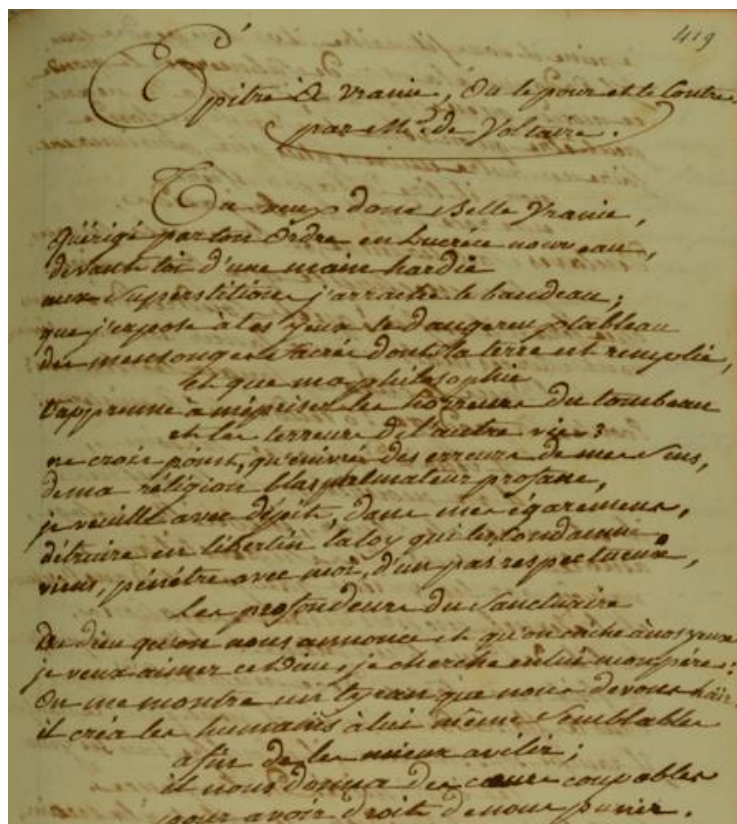 419
Epitre A Vranie, Ou le pour et le Contre
par Mr. de Voltaire.
Tu veux donc Belle Vranie,
Qu'erigé par ton Ordre en Lucréce nouveau,
devant toi d'une main hardie
aux Superstitions j'arrache le bandeau;
que j'expose à tes yeux le dangereux tableau
des mensonges Sacrés dont la terre est remplie,
et que ma philosophie
t'apprenne à mépriser les horreurs du tombeau
et les terreurs de l'autre vie?
ne crois point, qu'enivré des erreurs de mes Sens,
de ma réligion blasphémateur profane,
je veuille avec dépit, dans mes égaremens,
détruire en libertin la loy qui les condamne,
viens, pénétre avec moi, d'un pas respectueux,
les profondeurs du Sanctuaire
Du dieu qu'on nous annonce et qu'on cache à nos yeux
je veux aimer ce Dieu, je cherche en lui mon pére:
On me montre un tyran que nous devons haïr.
il créa les humains à lui même Semblables
afin de les mieux avilir;
il nous donna des cœurs coupables
pour avoir droit de nous punir.